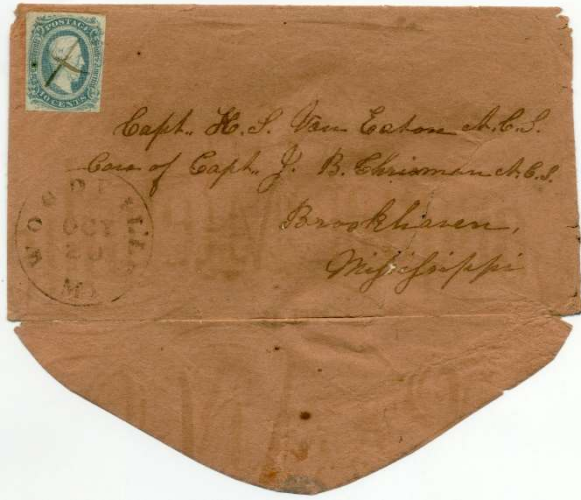 POSTAGE
10 CENTS
Capt. H. S. Van Eaton A.C.S.
Care of Capt. J. B. Chrisman A.C.S.
Brookhaven,
Mississippi
WOODVILLE
OCT
20
MI